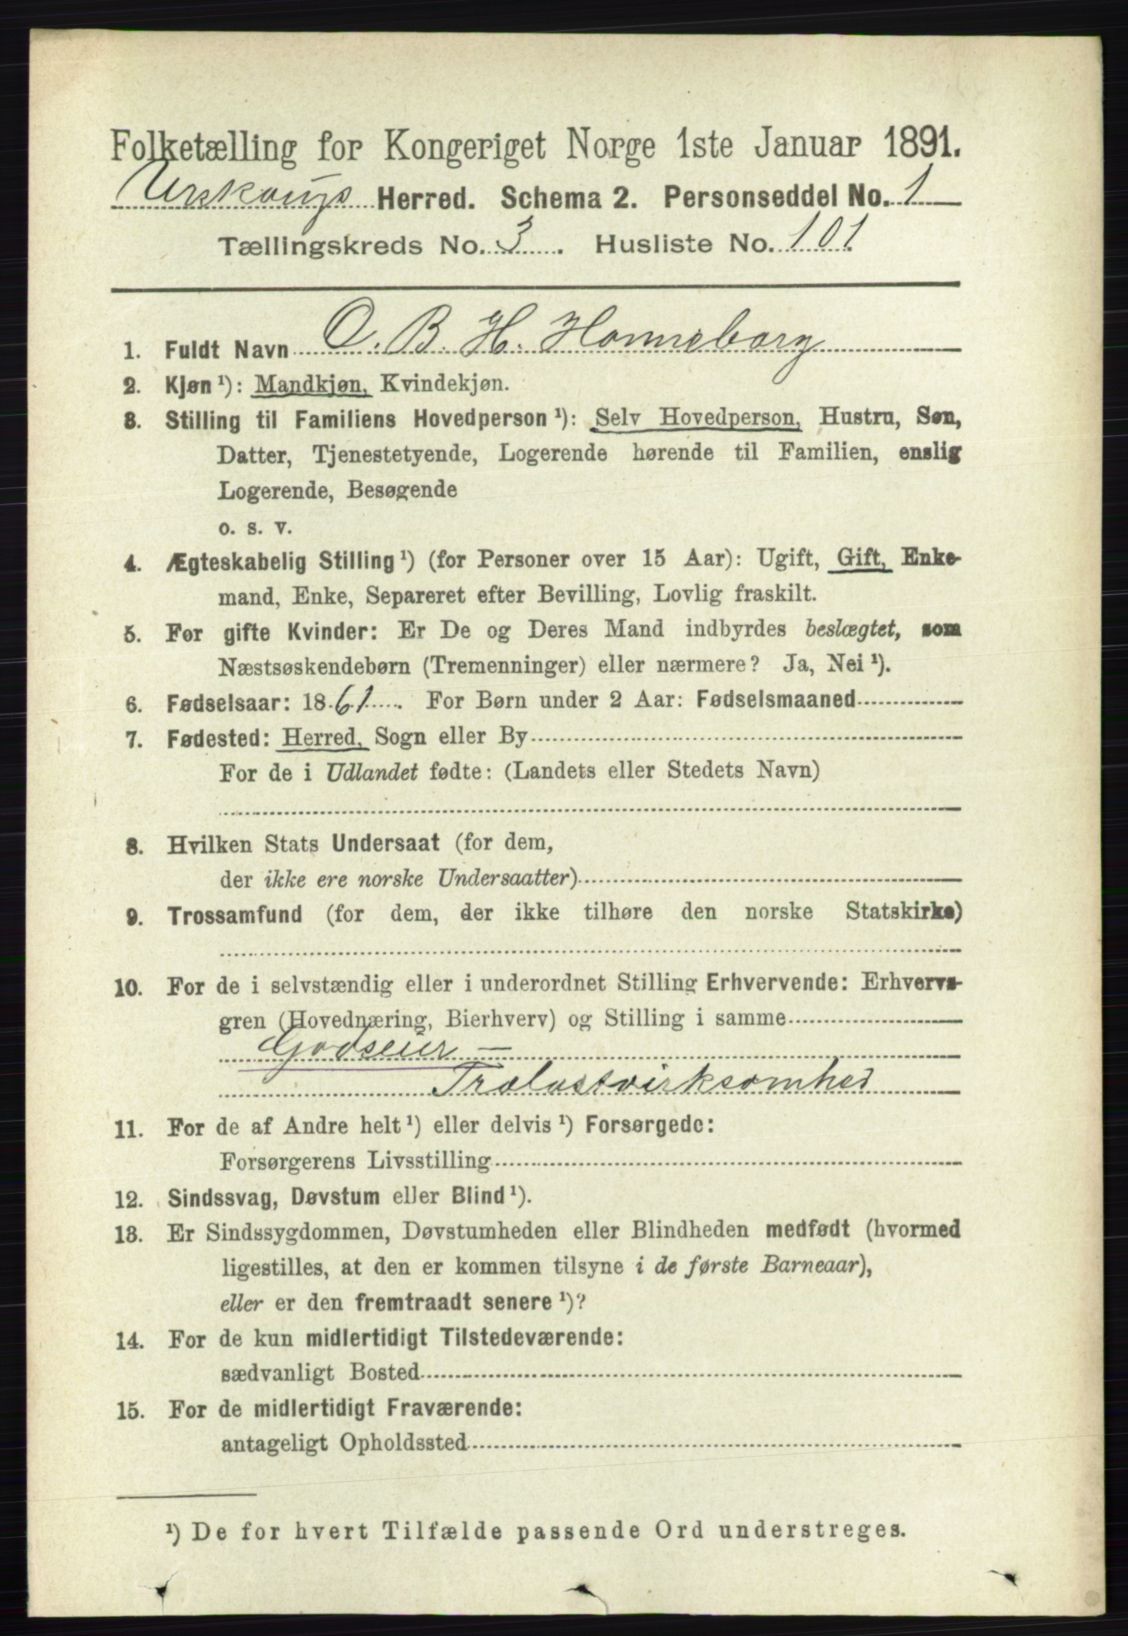 Folketælling for Kongeriget Norge 1ste Januar 1891.
Urskougs Herred. Schema 2. Personseddel No. 1
Tællingskreds No. 3. Husliste No. 101
1. Fuldt Navn O. B. H. Hanneborg
2. Kjøn ¹): Mandkjøn, Kvindekjøn.
3. Stilling til Familiens Hovedperson ¹): Selv Hovedperson, Hustru, Søn,
Datter, Tjenestetyende, Logerende hørende til Familien, enslig
Logerende, Besøgende
o. s. v.
4. Ægteskabelig Stilling ¹) (for Personer over 15 Aar): Ugift, Gift, Enke-
mand, Enke, Separeret efter Bevilling, Lovlig fraskilt.
5. For gifte Kvinder: Er De og Deres Mand indbyrdes beslægtet, som
Næstsøskendebørn (Tremenninger) eller nærmere? Ja, Nei ¹).
6. Fødselsaar: 1861. For Børn under 2 Aar: Fødselsmaaned
7. Fødested: Herred, Sogn eller By
For de i Udlandet fødte: (Landets eller Stedets Navn)
8. Hvilken Stats Undersaat (for dem,
der ikke ere norske Undersaatter)
9. Trossamfund (for dem, der ikke tilhøre den norske Statskirke)
10. For de i selvstændig eller i underordnet Stilling Erhvervende: Erhvervs-
gren (Hovednæring, Bierhverv) og Stilling i samme
Godseier –
Trælastvirksomhed
11. For de af Andre helt ¹) eller delvis ¹) Forsørgede:
Forsørgerens Livsstilling
12. Sindssvag, Døvstum eller Blind ¹).
13. Er Sindssygdommen, Døvstumheden eller Blindheden medfødt (hvormed
ligestilles, at den er kommen tilsyne i de første Barneaar),
eller er den fremtraadt senere ¹)?
14. For de kun midlertidigt Tilstedeværende:
sædvanligt Bosted
15. For de midlertidigt Fraværende:
antageligt Opholdssted
¹) De for hvert Tilfælde passende Ord understreges.